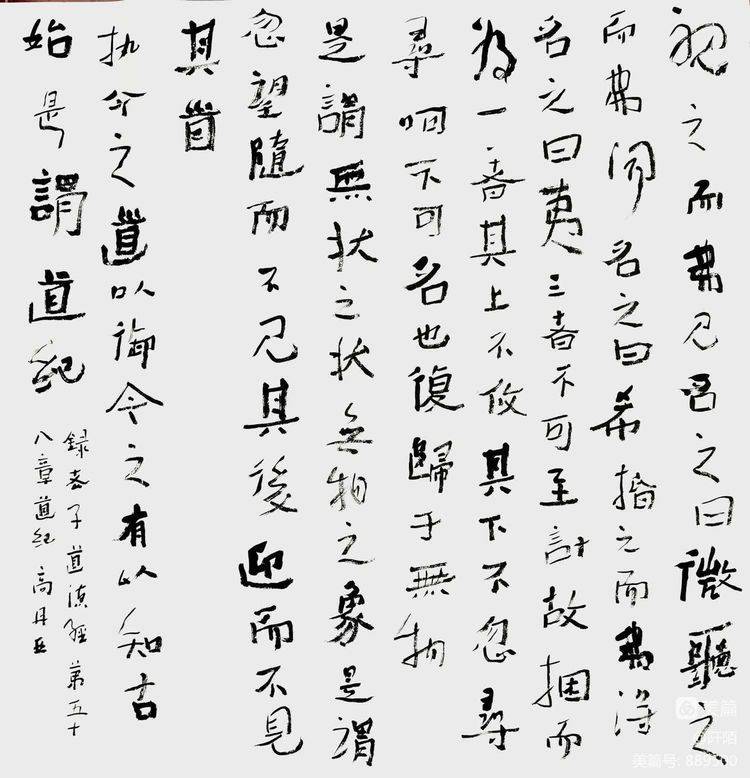 視之而弗見名之曰微聽之
而弗聞名之曰希捪之而弗得
名之曰夷三者不可至計故捆而
為一·者其上不攸其下不忽尋
尋呵不可名也復歸于無物
是謂無状之状無物之象是謂
忽望隨而不見其後迎而不見
其首
执今之道以御今之有以知古
始是謂道紀
録老子道德經第五十
八章道紀 高
美篇
美篇号: